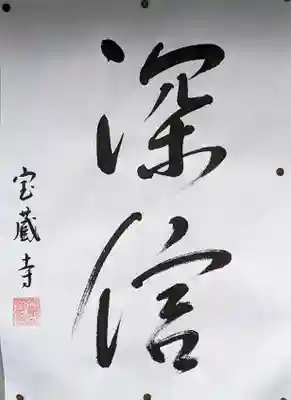 深信
宝蔵寺